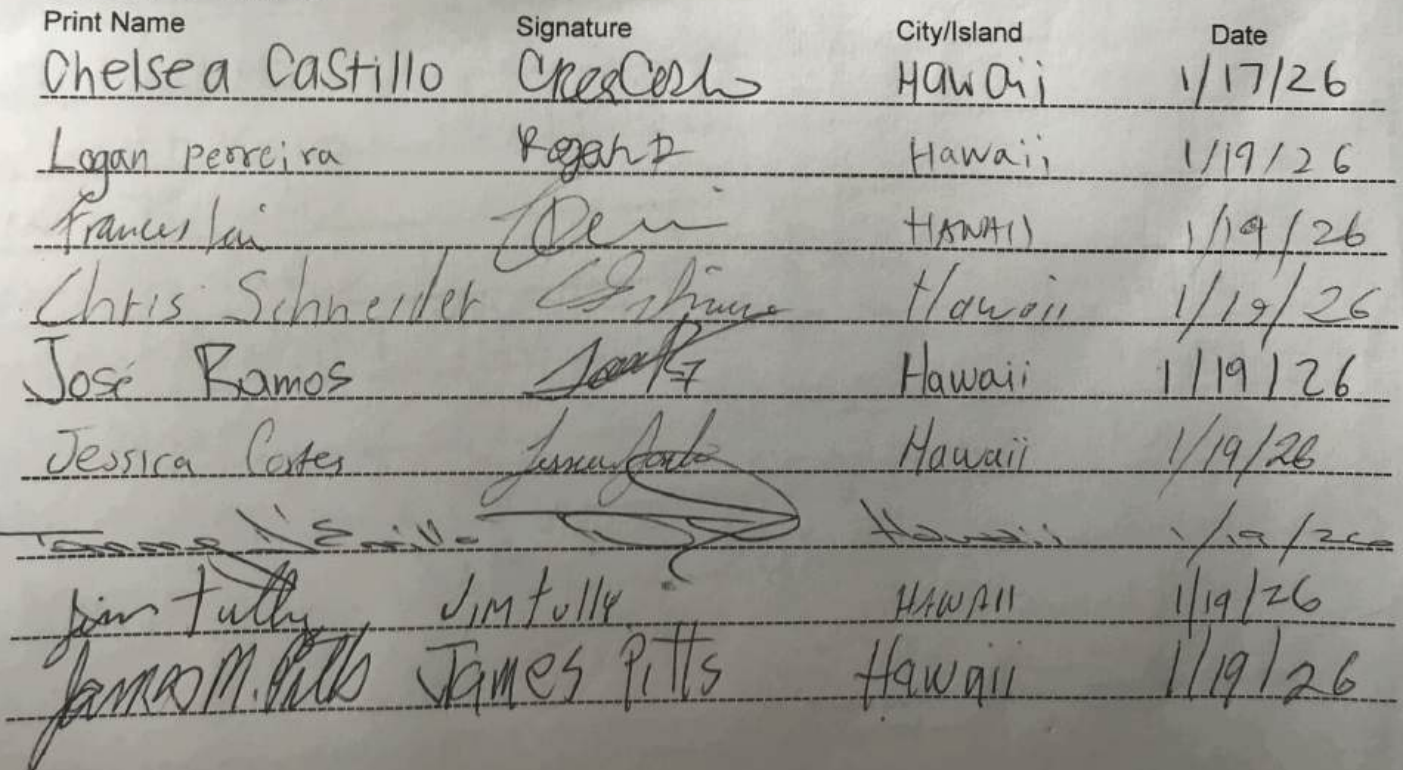 Print Name Signature City/Island Date
Chelsea Castillo Hawaii 1/17/26
Logan perreira Hawaii 1/19/26
Frances HAWAII 1/19/26
Chris Schneider Hawaii 1/19/26
José Ramos Hawaii 1/19/26
Jessica Cortes Hawaii 1/19/26
Hawaii 1/19/26
Jim Tully JIM tully HAWAII 1/19/26
James M. Pitts James Pitts Hawaii 1/19/26